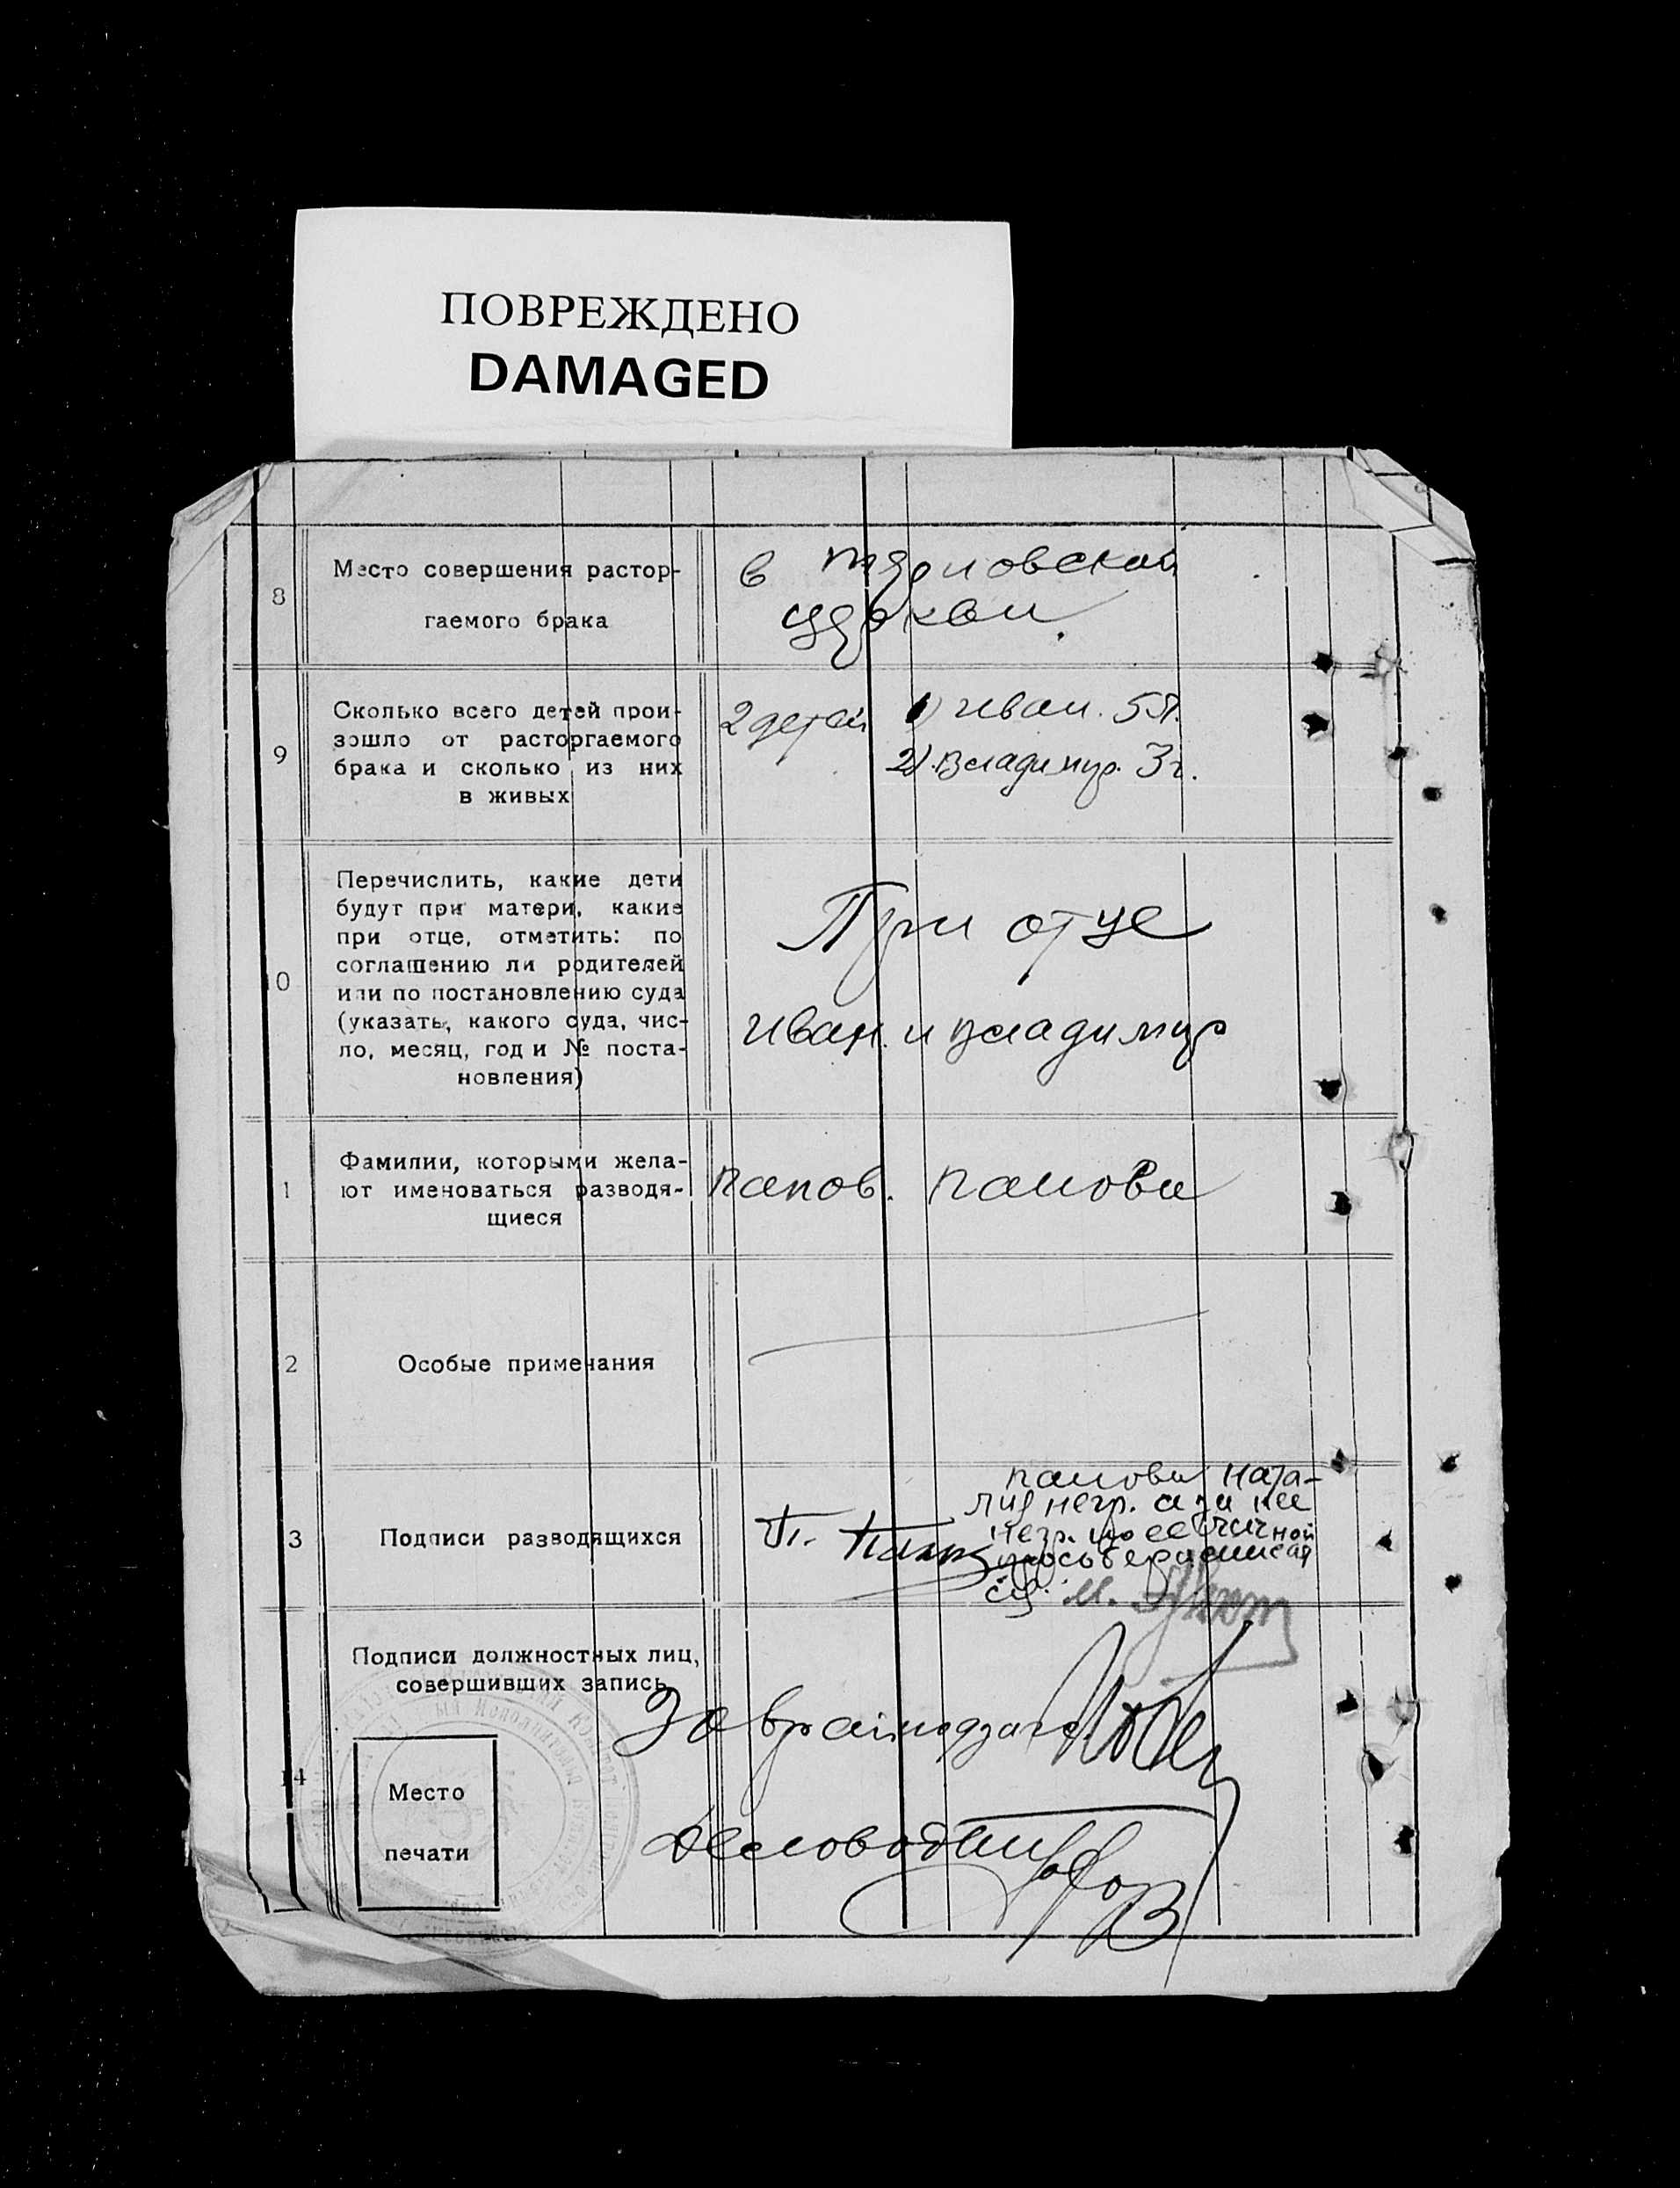 ПОВРЕЖДЕНО
DAMAGED
8
Место совершения растор-
гаемого брака
в
церкви
9
Сколько всего детей прои-
зошло от расторгаемого
брака и сколько из них
в живых
2 детей 1) Иван. 5 л.
2) Владимир. 3 г.
10
Перечислить, какие дети
будут при матери, какие
при отце, отметить: по
соглашению ли родителей
или по постановлению суда
(указать, какого суда, чис-
ло, месяц, год и № поста-
новления)
При отце
Иван и Владимир
1
Фамилии, которыми жела-
ют именоваться разводя-
щиеся
2
Особые примечания
3
Подписи разводящихся
Ната-
лия негр. а за нее
негр. по ее личной
просьбе расписал
ся.
14
Подписи должностных лиц,
совершивших запись
Место
печати
Зав
Деловод